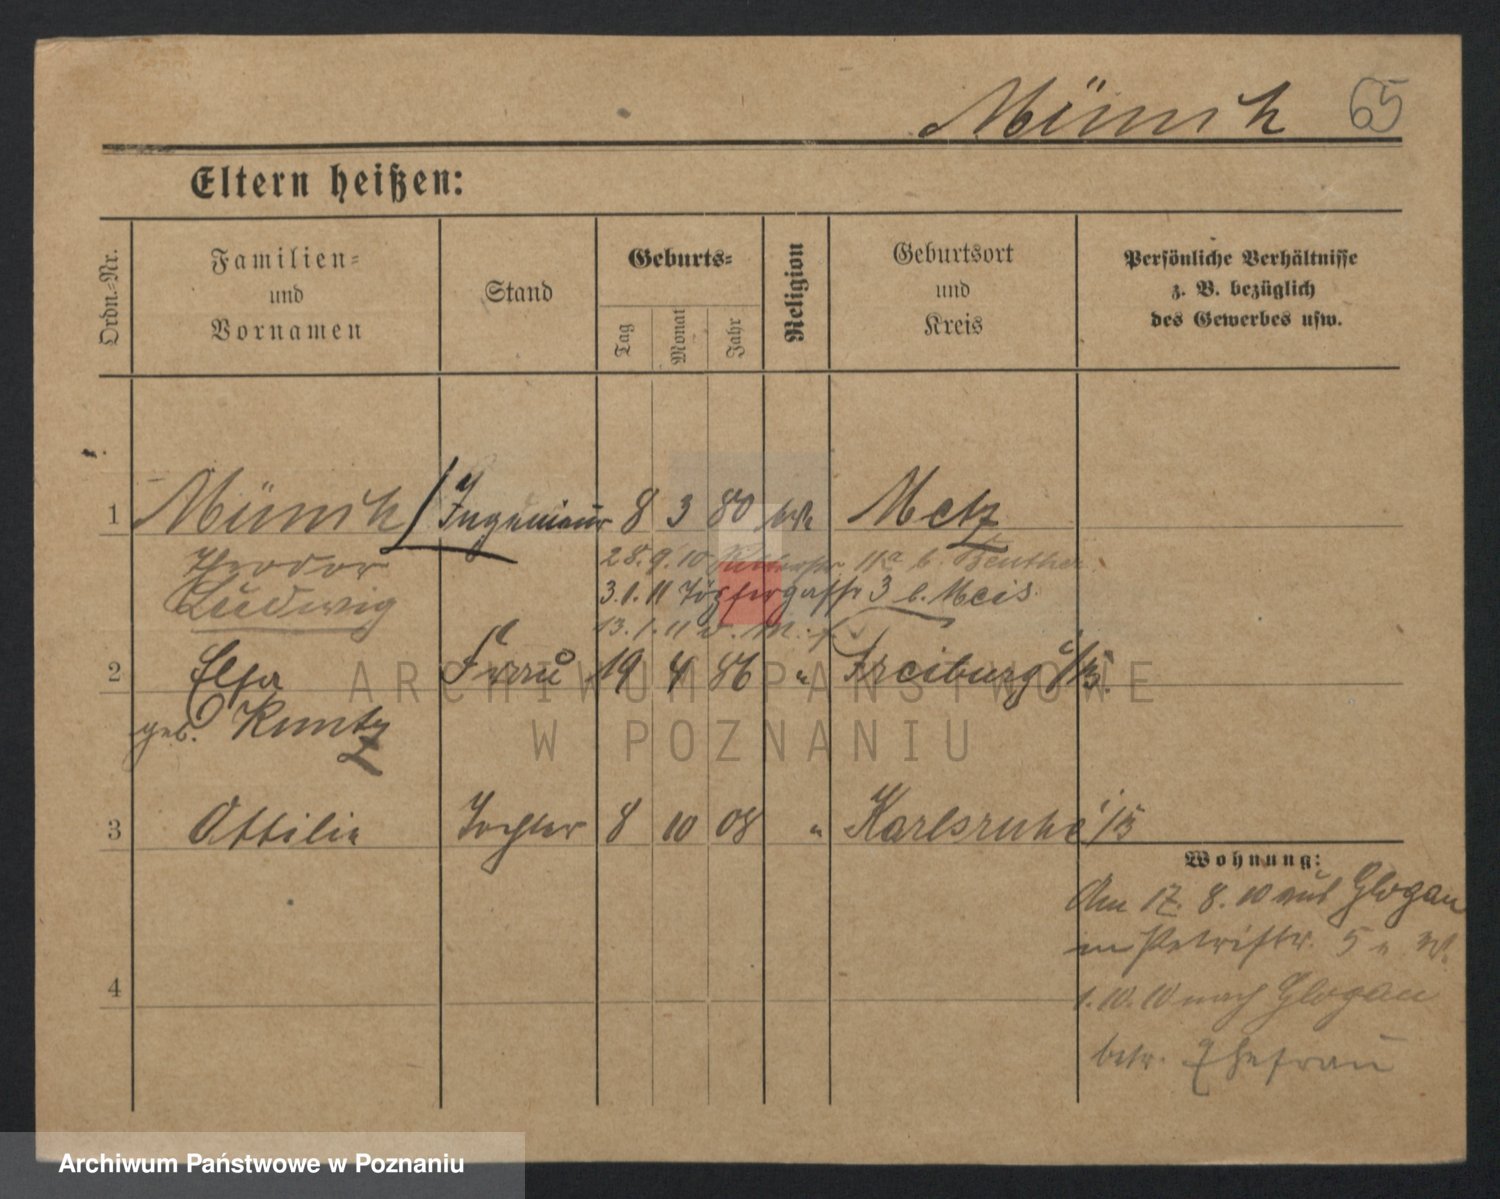 Münich 65
Eltern heißen:
Ordn.-Nr.
Familien-
und
Vornamen
Stand
Geburts-
Tag
Monat
Jahr
Religion
Geburtsort
und
Kreis
Persönliche Verhältnisse
z. B. bezüglich
des Gewerbes usw.
1 Münich Ingenieur 8 3 80 Metz
Theodor
Ludwig
28.9.10 11a b. Beuther
3.1.11 Töpfergasse 3 b. Meis
13.1.11
2 Elsa Frau 19 4 86 " Freiburg i/B.
geb. Kuntz
3 Ottilie Tochter 8 10 08 " Karlsruhe i/B
Wohnung:
Am 17. 8. 10 aus Glogau
in Petristr. 5 b. W.
4
1.10.10 nach Glogau
betr. Ehefrau
ARCHIWUM PAŃSTWOWE
W POZNANIU
Archiwum Państwowe w Poznaniu